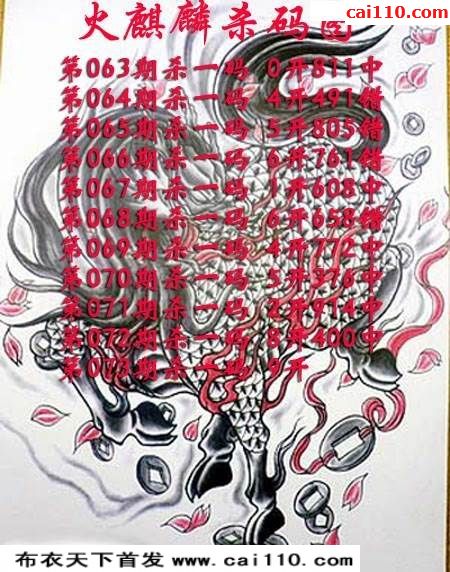 cai110.com
火麒麟杀码
第063期杀一码 0开811中
第064期杀一码 4开491错
第065期杀一码 5开805错
第066期杀一码 6开761错
第067期杀一码 1开608中
第068期杀一码 6开658错
第069期杀一码 4开772中
第070期杀一码 5开376中
第071期杀一码 2开914中
第072期杀一码 8开400中
第073期杀一码 9开
布衣天下首发 www.cai110.com